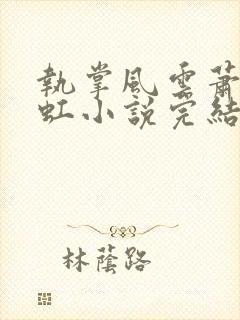 執掌風雲蕭
虹小說完結
林蔭路